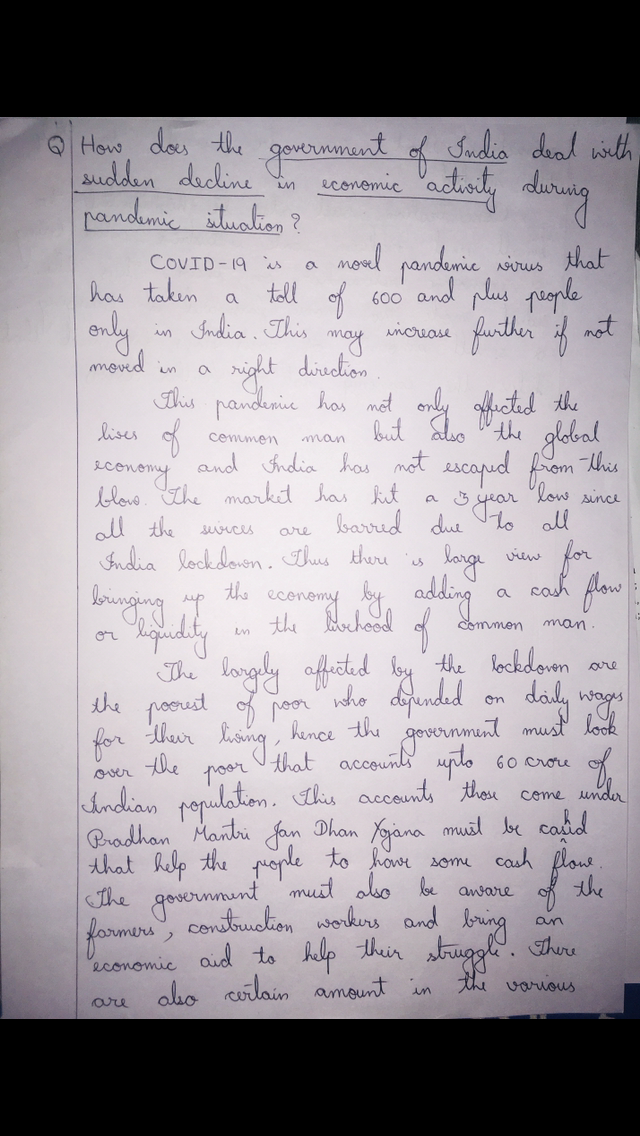 Q How does the government of India deal with
sudden decline in economic activity during
pandemic situation?
COVID-19 is a novel pandemic virus that
has taken a toll of 600 and plus people
only in India. This may increase further if not
moved in a right direction.
This pandemic has not only affected the
lives of common man but also the global
economy and India has not escaped from this
blow. The market has hit a 3 year low since
all the are barred due to all
India lockdown. Thus there is large view for
bringing up the economy by adding a cash flow
or liquidity in the livehood of common man.
The largely affected by the lockdown are
the poorest of poor who depended on daily wages
for their living, hence the government must look
over the poor that accounts upto 60 crore of
Indian population. This accounts those come under
Pradhan Mantri Jan Dhan Yojana must be cashd
that help the people to have some cash flow.
The government must also be aware of the
farmers, construction workers and bring an
economic aid to help their struggle. There
are also certain amount in the various